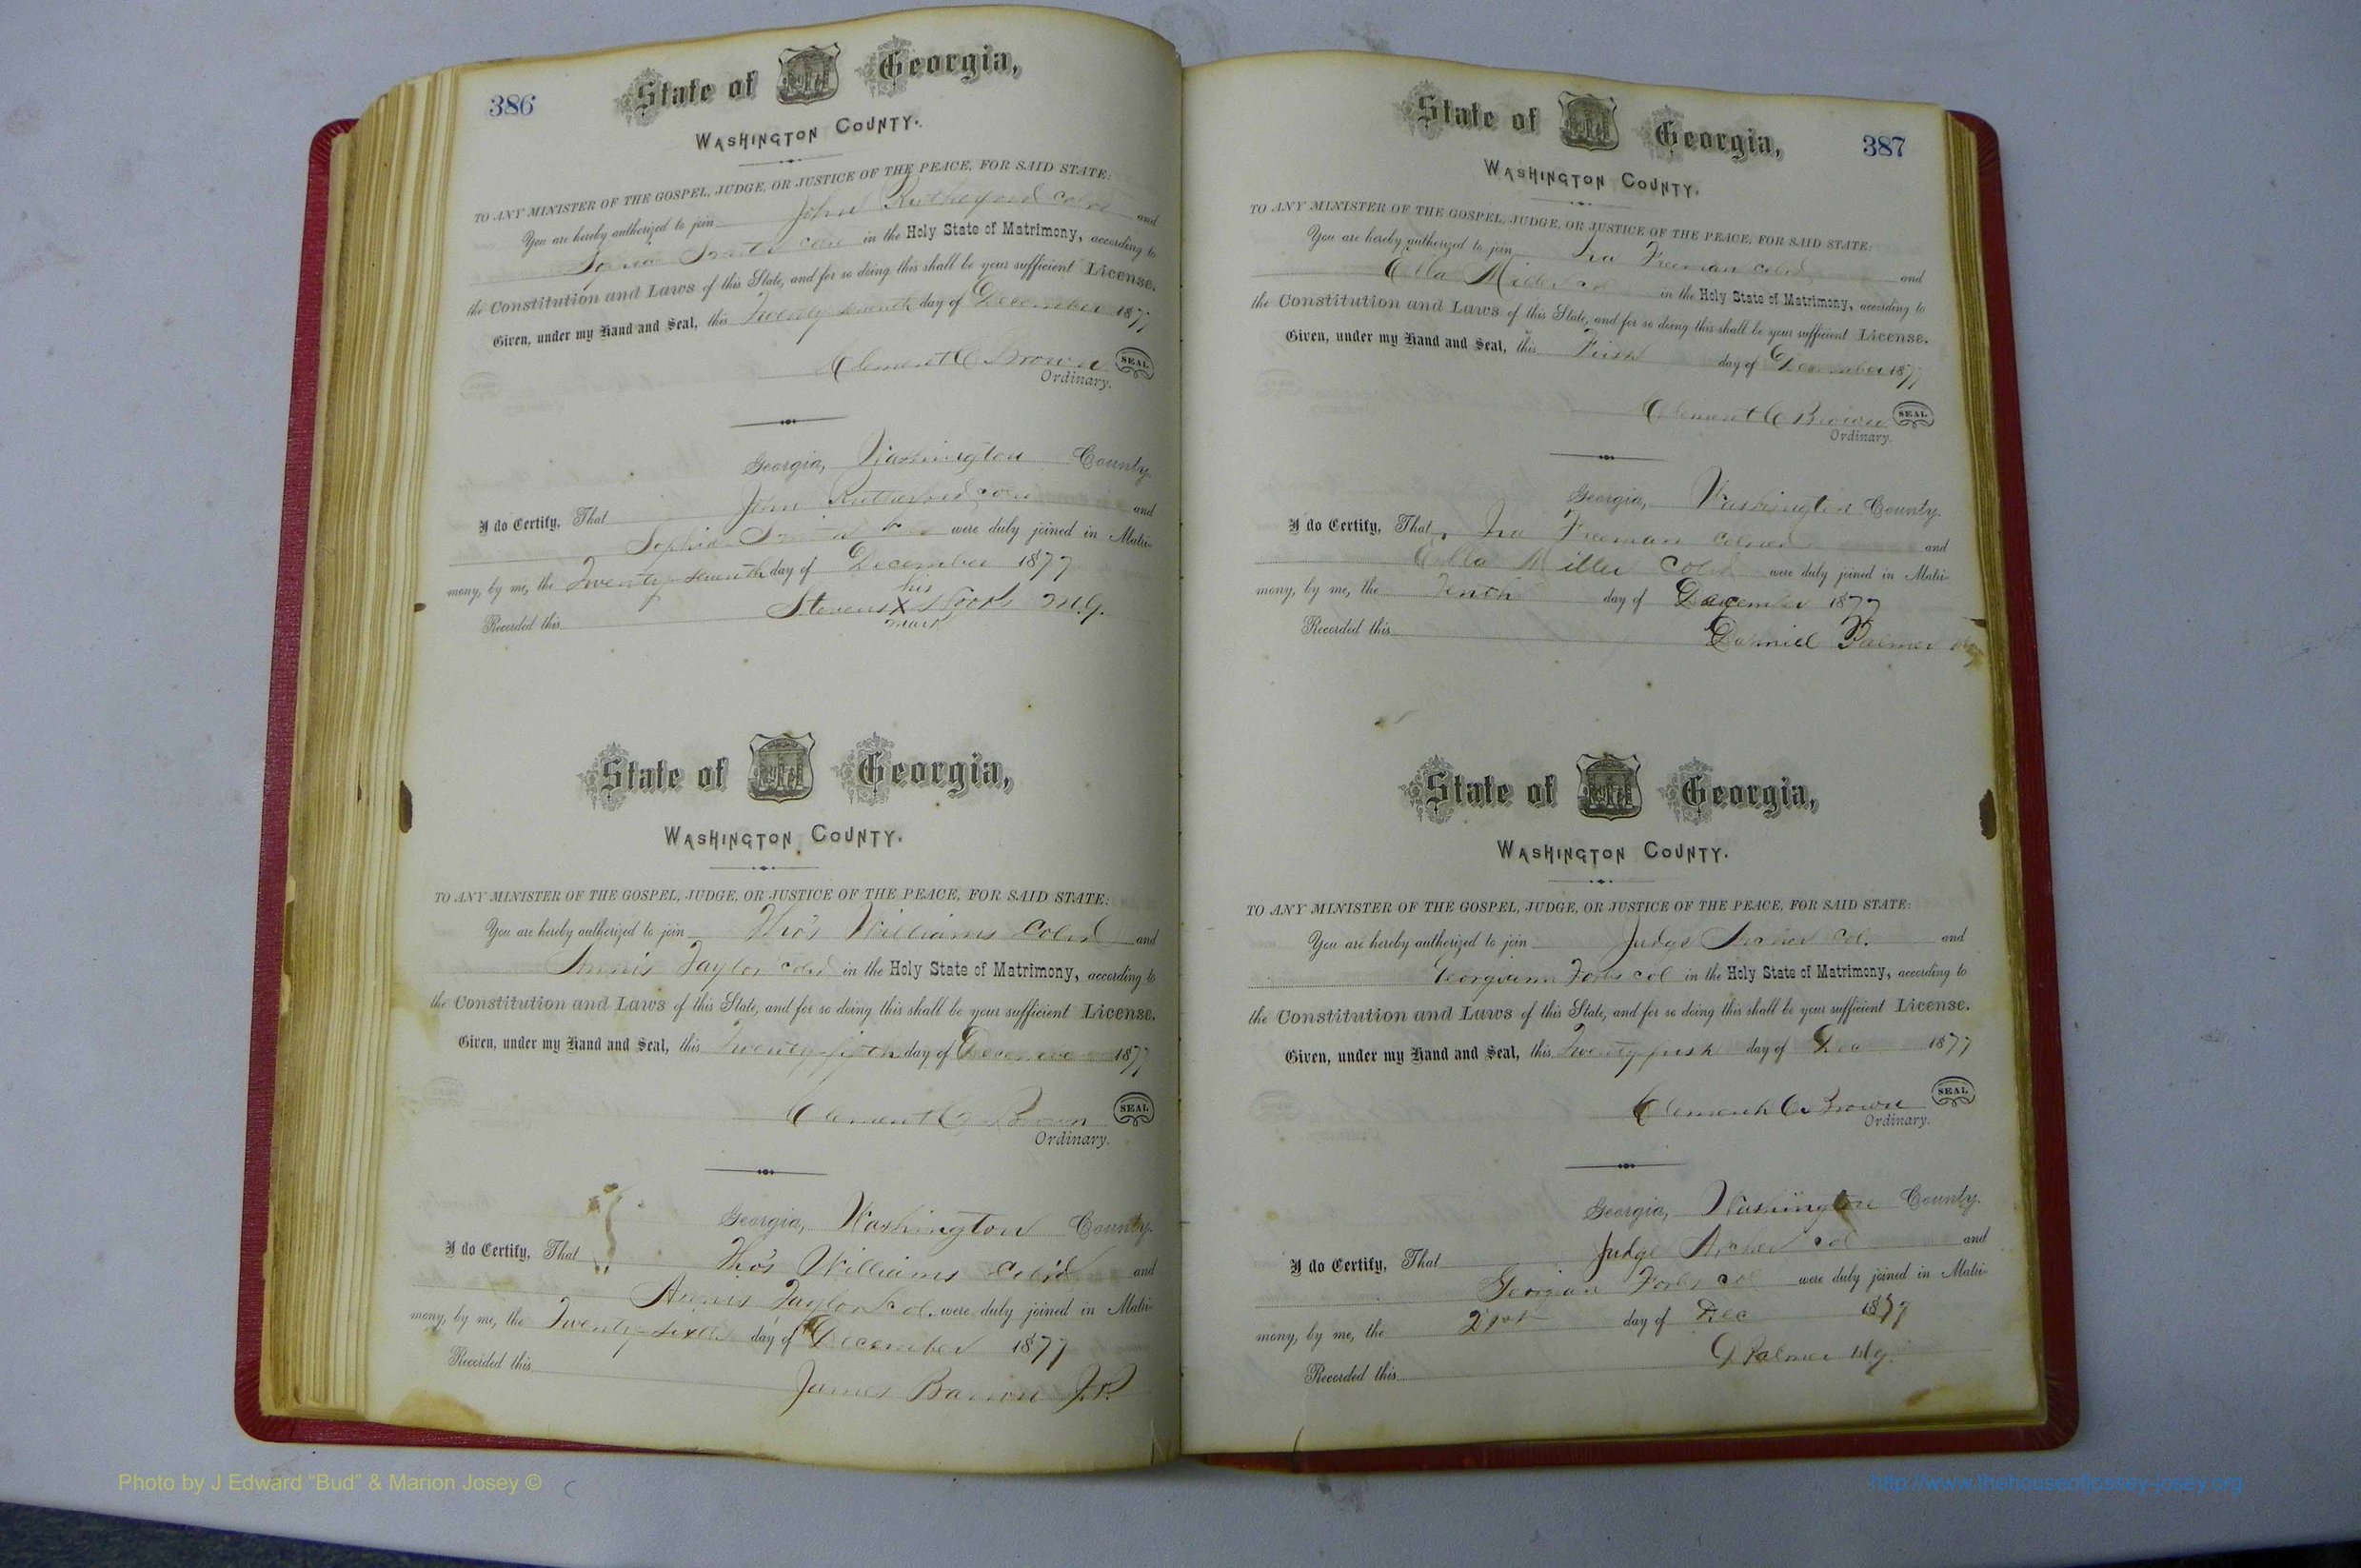 386
State of Georgia,
WASHINGTON COUNTY.
TO ANY MINISTER OF THE GOSPEL, JUDGE, OR JUSTICE OF THE PEACE, FOR SAID STATE:
You are hereby authorized to join John Rutherford and
Sophia Smith in the Holy State of Matrimony, according to
the Constitution and Laws of this State, and for so doing this shall be your sufficient License.
Given, under my Hand and Seal, this Twenty seventh day of December 1877
Clement C Brown SEAL
Ordinary.
Georgia, Washington County.
I do Certify, That John Rutherford and
Sophia Smith were duly joined in Matri-
mony, by me, the Twenty-seventh day of December 1877
his
Recorded this Stevens X M.G.
mark
State of Georgia,
WASHINGTON COUNTY.
TO ANY MINISTER OF THE GOSPEL, JUDGE, OR JUSTICE OF THE PEACE, FOR SAID STATE:
You are hereby authorized to join Tho's Williams Col'd and
Annis Taylor Col'd in the Holy State of Matrimony, according to
the Constitution and Laws of this State, and for so doing this shall be your sufficient License.
Given, under my Hand and Seal, this Twenty-fifth day of December 1877
Clement C Brown SEAL
Ordinary.
Georgia, Washington County.
I do Certify, That Tho's Williams Col'd and
Annis Taylor Col. were duly joined in Matri-
mony, by me, the Twenty-sixth day of December 1877
Recorded this
James Barron J.P.
387
State of Georgia,
WASHINGTON COUNTY.
TO ANY MINISTER OF THE GOSPEL, JUDGE, OR JUSTICE OF THE PEACE, FOR SAID STATE:
You are hereby authorized to join Ira Freeman col'd and
Ella Miller col in the Holy State of Matrimony, according to
the Constitution and Laws of this State, and for so doing this shall be your sufficient License.
Given, under my Hand and Seal, this First day of December 1877
Clement C Brown SEAL
Ordinary.
Georgia, Washington County.
I do Certify, That Ira Freeman and
Ella Miller Col'd were duly joined in Matri-
mony, by me, the Tenth day of December 1877
Recorded this Daniel Palmer
State of Georgia,
WASHINGTON COUNTY.
TO ANY MINISTER OF THE GOSPEL, JUDGE, OR JUSTICE OF THE PEACE, FOR SAID STATE:
You are hereby authorized to join Judge Archer Col. and
Georgiann col in the Holy State of Matrimony, according to
the Constitution and Laws of this State, and for so doing this shall be your sufficient License.
Given, under my Hand and Seal, this Twenty-first day of Dec 1877
Clement C Brown SEAL
Ordinary.
Georgia, Washington County.
I do Certify, That Judge Archer Col and
Georgian col were duly joined in Matri-
mony, by me, the 21st day of Dec 1877
D Palmer M.G.
Recorded this
Photo by J Edward “Bud” & Marion Josey ©
http://www.thehouseofjossey-josey.org